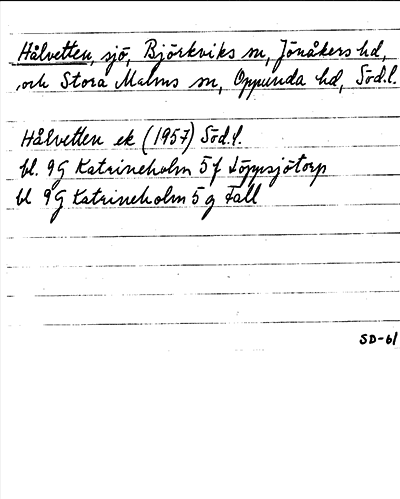 Hålvetten, sjö, Björkviks sn, Jönåkers hd,
och Stora Malms sn, Oppunda hd, Söd.l.
Hålvetten ek (1957) Söd.l.
bl. 9G Katrineholm 5 f Löppsjötorp
bl 9G Katrineholm 5 g Fall
SD-61